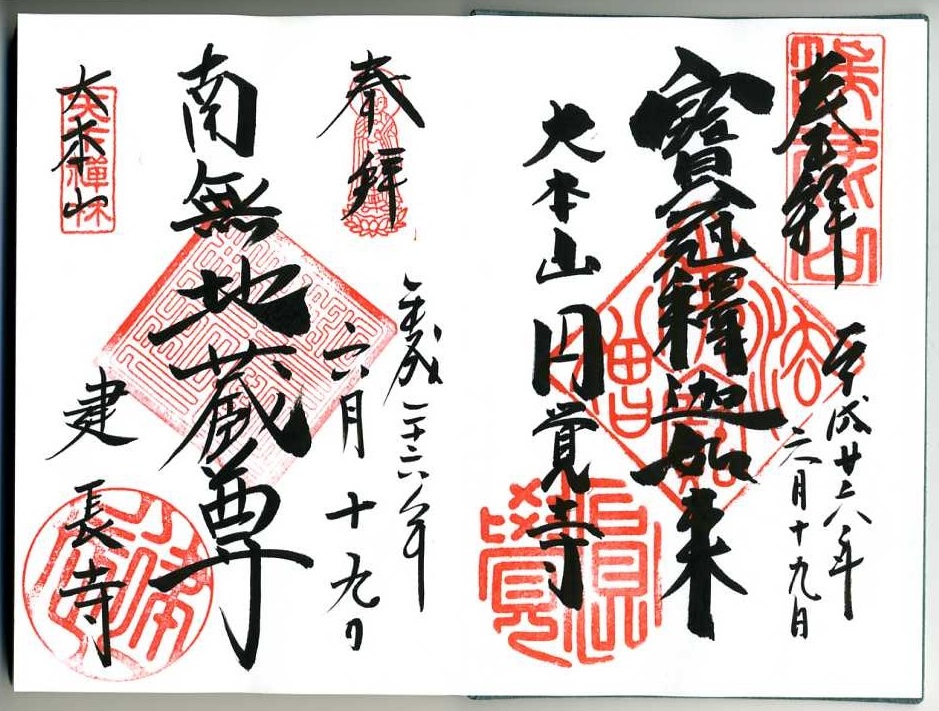 奉拝
平成廿六年
六月十九日
寶冠釋迦如来
大本山
円覚寺
奉拝
平成二十六年
六月十九日
南無地蔵尊
大本山
建長寺